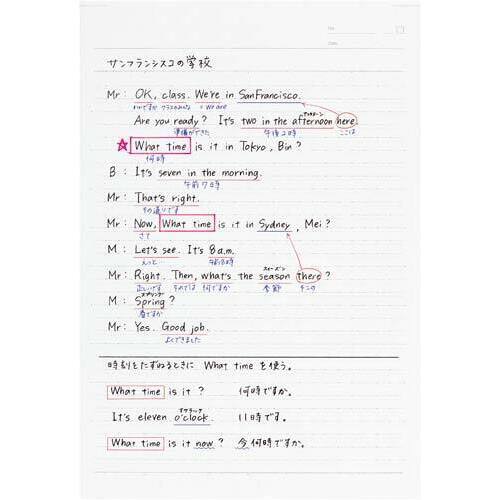 No.
Date
サンフランシスコの学校
Mr: OK, class. We're in SanFrancisco.
いいですか クラスのみんな = We are
アフタヌーン
Are you ready? It's two in the afternoon here.
準備ができた 午後2時 ここは
☆ What time is it in Tokyo, Bin?
何時
B: It's seven in the morning.
午前7時
Mr: That's right.
その通りです
Mr: Now, What time is it in Sydney, Mei?
さて
M: Let's see. It's 8 a.m.
えっと 午前8時
スィーズン
Mr: Right. Then, what's the season there?
正しいです それでは 何ですか 季節 そこの
スプリング
M: Spring?
春ですか
Mr: Yes. Good job.
よくできました
時刻をたずねるときに What time を使う。
What time is it? 何時ですか。
オクラック
It's eleven o'clock. 11時です。
What time is it now? 今何時ですか。